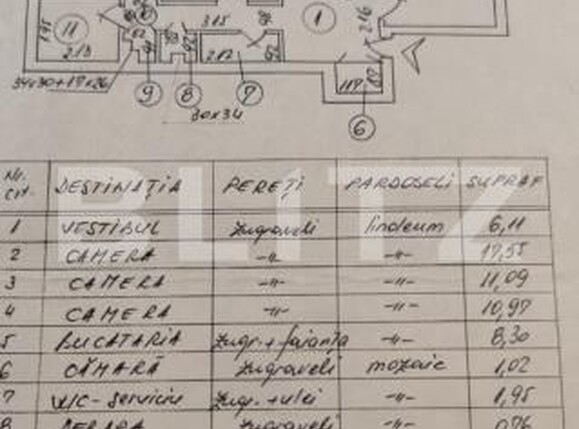 11 1,95 2.13 315 1 2,16
2.12 1.17
34x30+17x26 9 8 7 6
30x34
BLITZ
Nr. crt. DESTINAȚIA PEREȚI PARDOSELI SUPRAF
1 VESTIBUL zugraveli linoleum 6,11
2 CAMERA -"- -"- 17,55
3 CAMERA -"- -"- 11,09
4 CAMERA -"- -"- 10,97
5 BUCATARIA zugr.+faianța -"- 8,30
6 CĂMARĂ zugraveli mozaic 1,02
7 W/C-serviciu zugr.+ulei -"- 1,95
8 zugraveli -"-